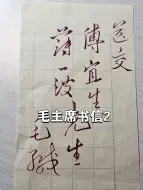 送交
傅宜生
薄一波先生
毛緘
毛主席书信2